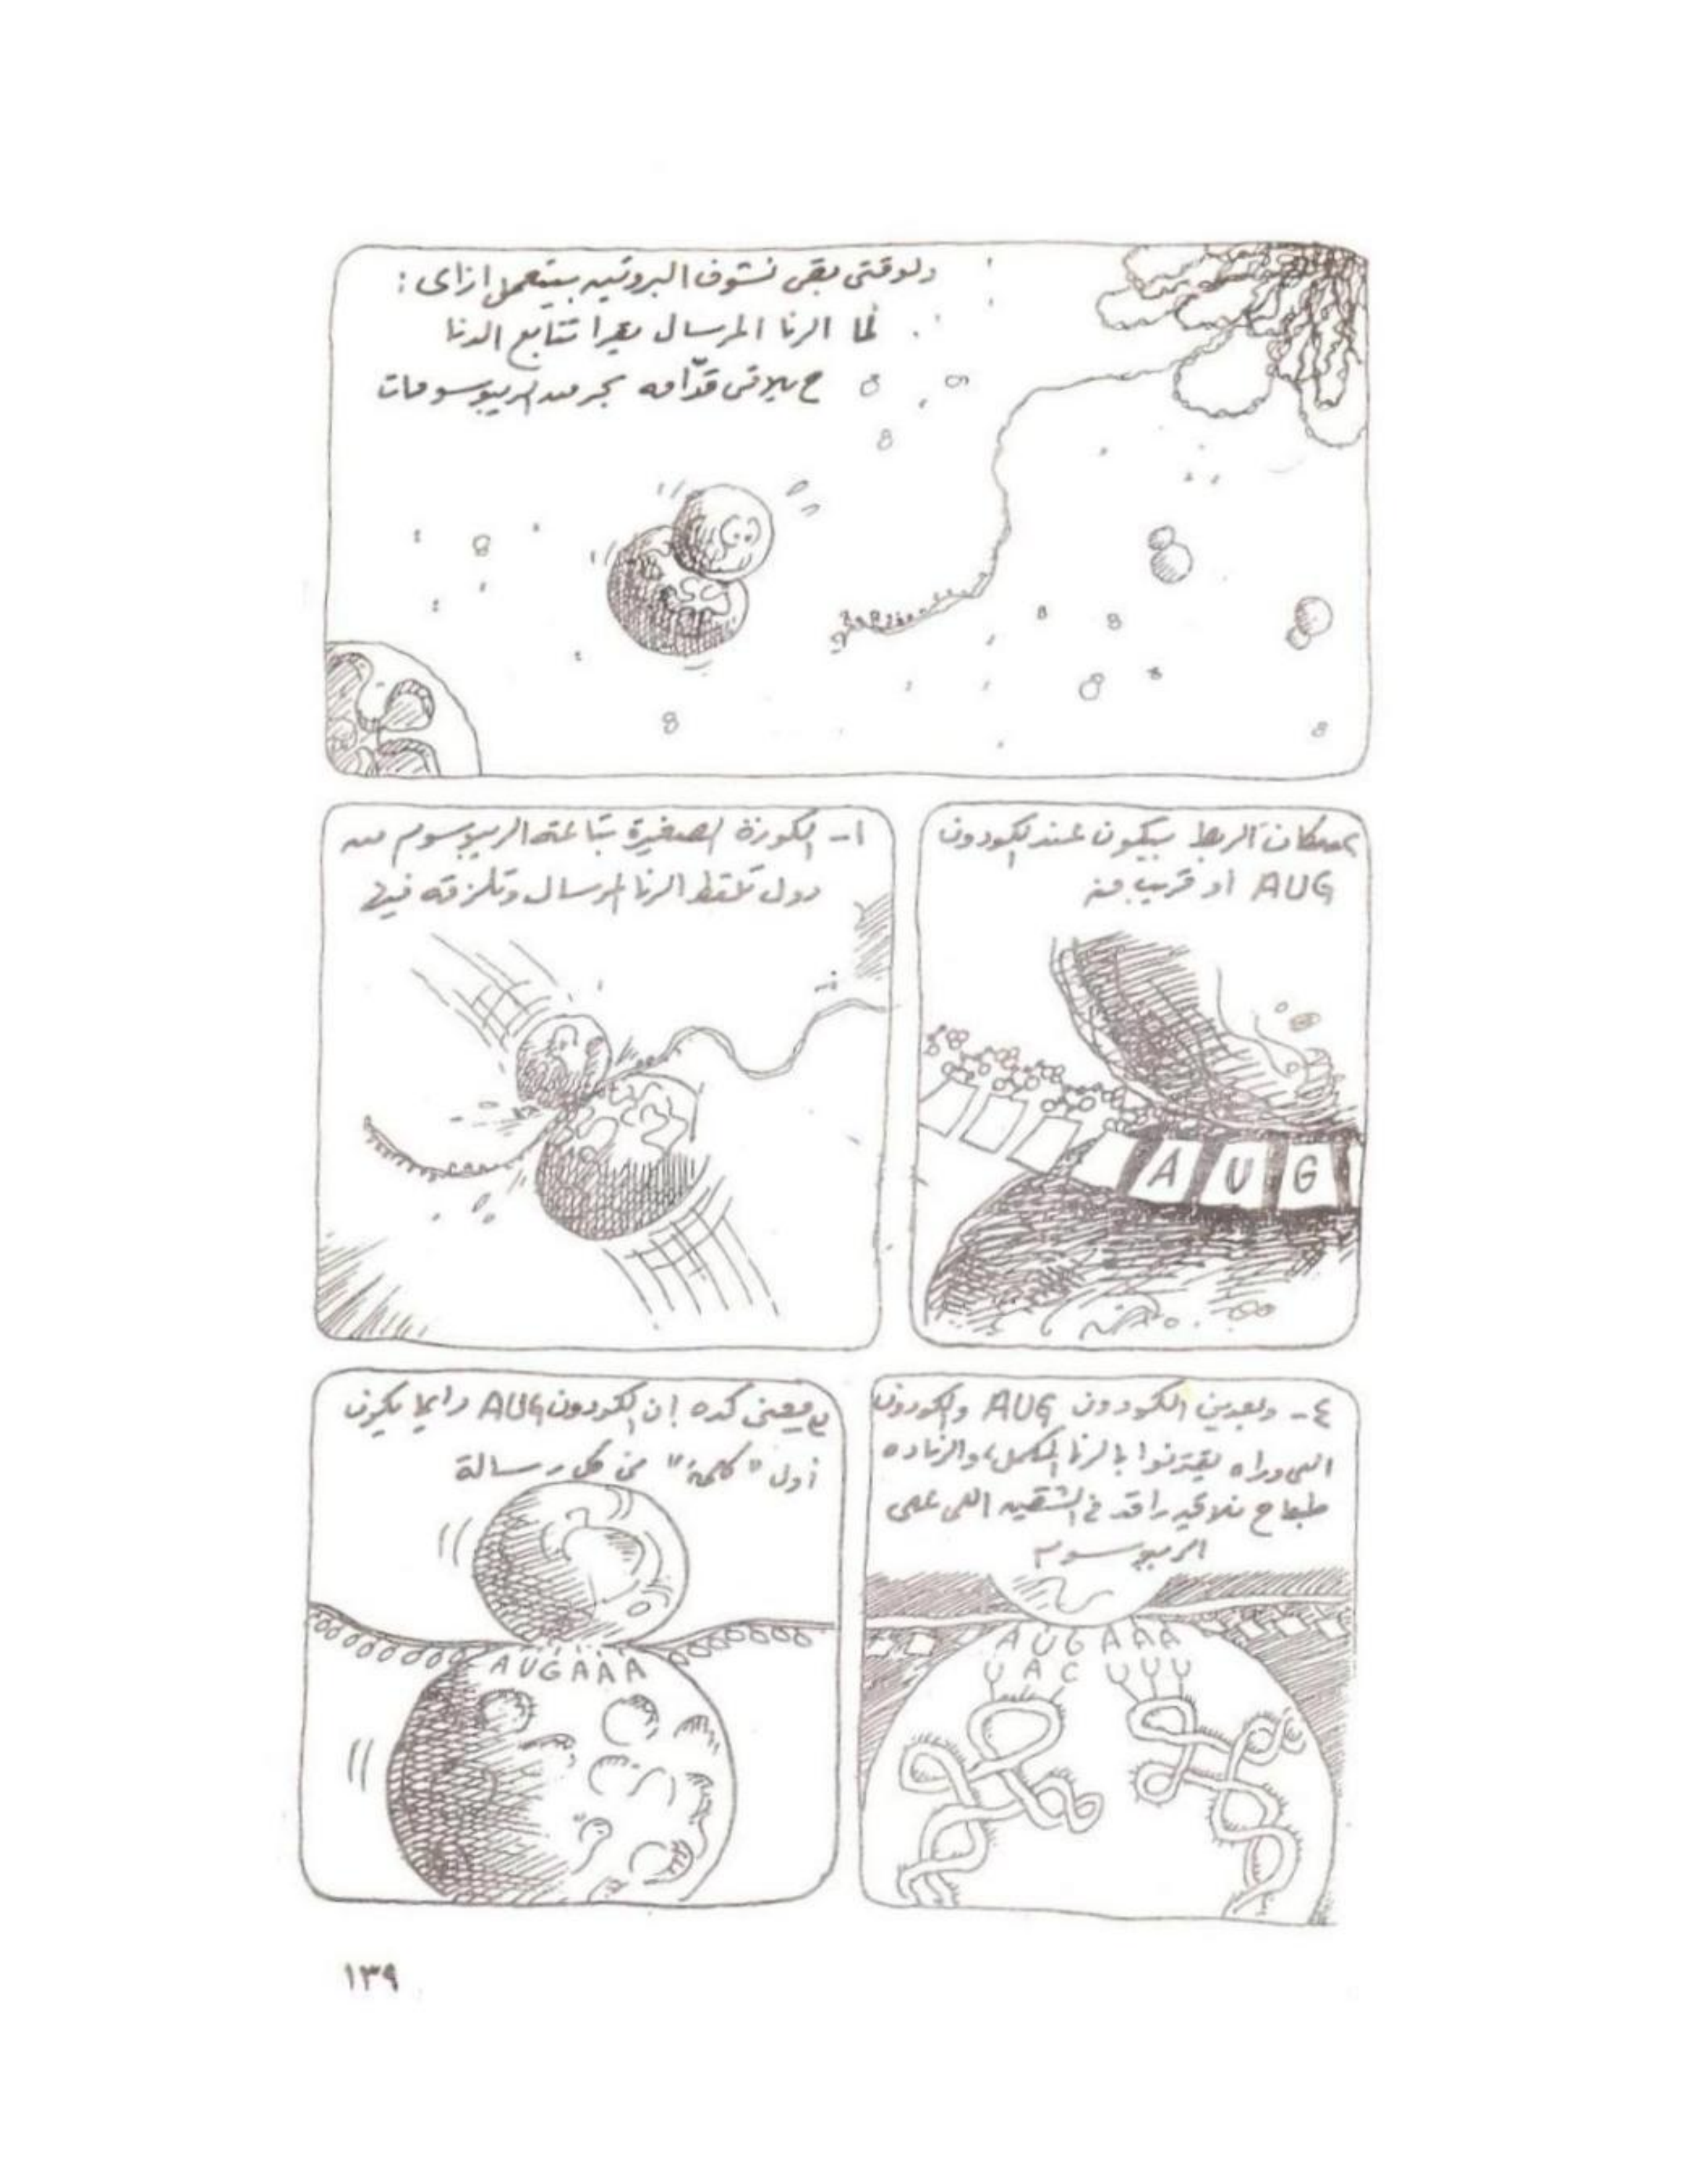 دلوقتى بقى نشوف البروتين بيتعمل ازاى :
لما الرنا المرسال يقرا تتابع الدنا
ح يلاقى قدّامه بحر من الريبوسومات
١- الكورة الصغيرة بتاعة الريبوسوم من
دول تلتقط الرنا المرسال وتلزقه فيها
مكان الربط بيكون عند الكودون
AUG أو قريب منه
AUG
معنى كده إن الكودون AUG دايما يكون
أول "كلمة" فى كل رسالة
AUGAAA
٤- وبعدين الكودون AUG والكودون
اللى وراه يقترنوا بالرنا المكمل، والرنا ده
طبعا ح نلاقيه راقد فى الشقين اللى على
الريبوسوم
AUGAAA
UAC UUU
١٣٩